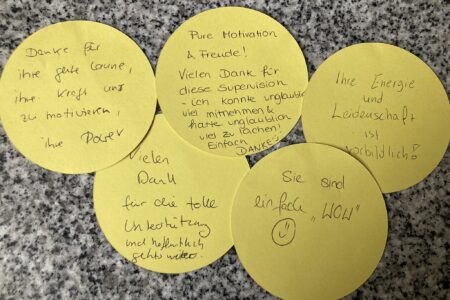 Danke für
ihre gute Laune,
ihre Kraft uns
zu motivieren,
ihre Power
Pure Motivation
& Freude!
Vielen Dank für
diese Supervision
- ich konnte unglaublich
viel mitnehmen &
hatte unglaublich
viel zu lachen!
Einfach
DANKE
Ihre Energie
und
Leidenschaft
ist
vorbildlich!
Vielen
Dank
für die tolle
Unterstützung
und hoffentlich
gehts weiter.
Sie sind
einfach "WOW"